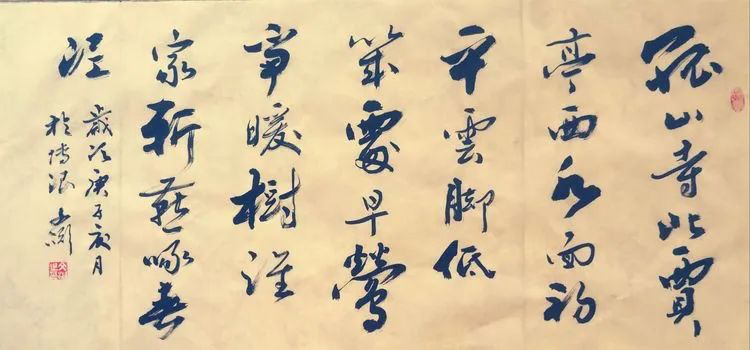 孤山寺北賈
亭西水面初
平雲腳低
幾處早鶯
爭暖樹誰
家新燕啄春
泥
歲次庚子
於